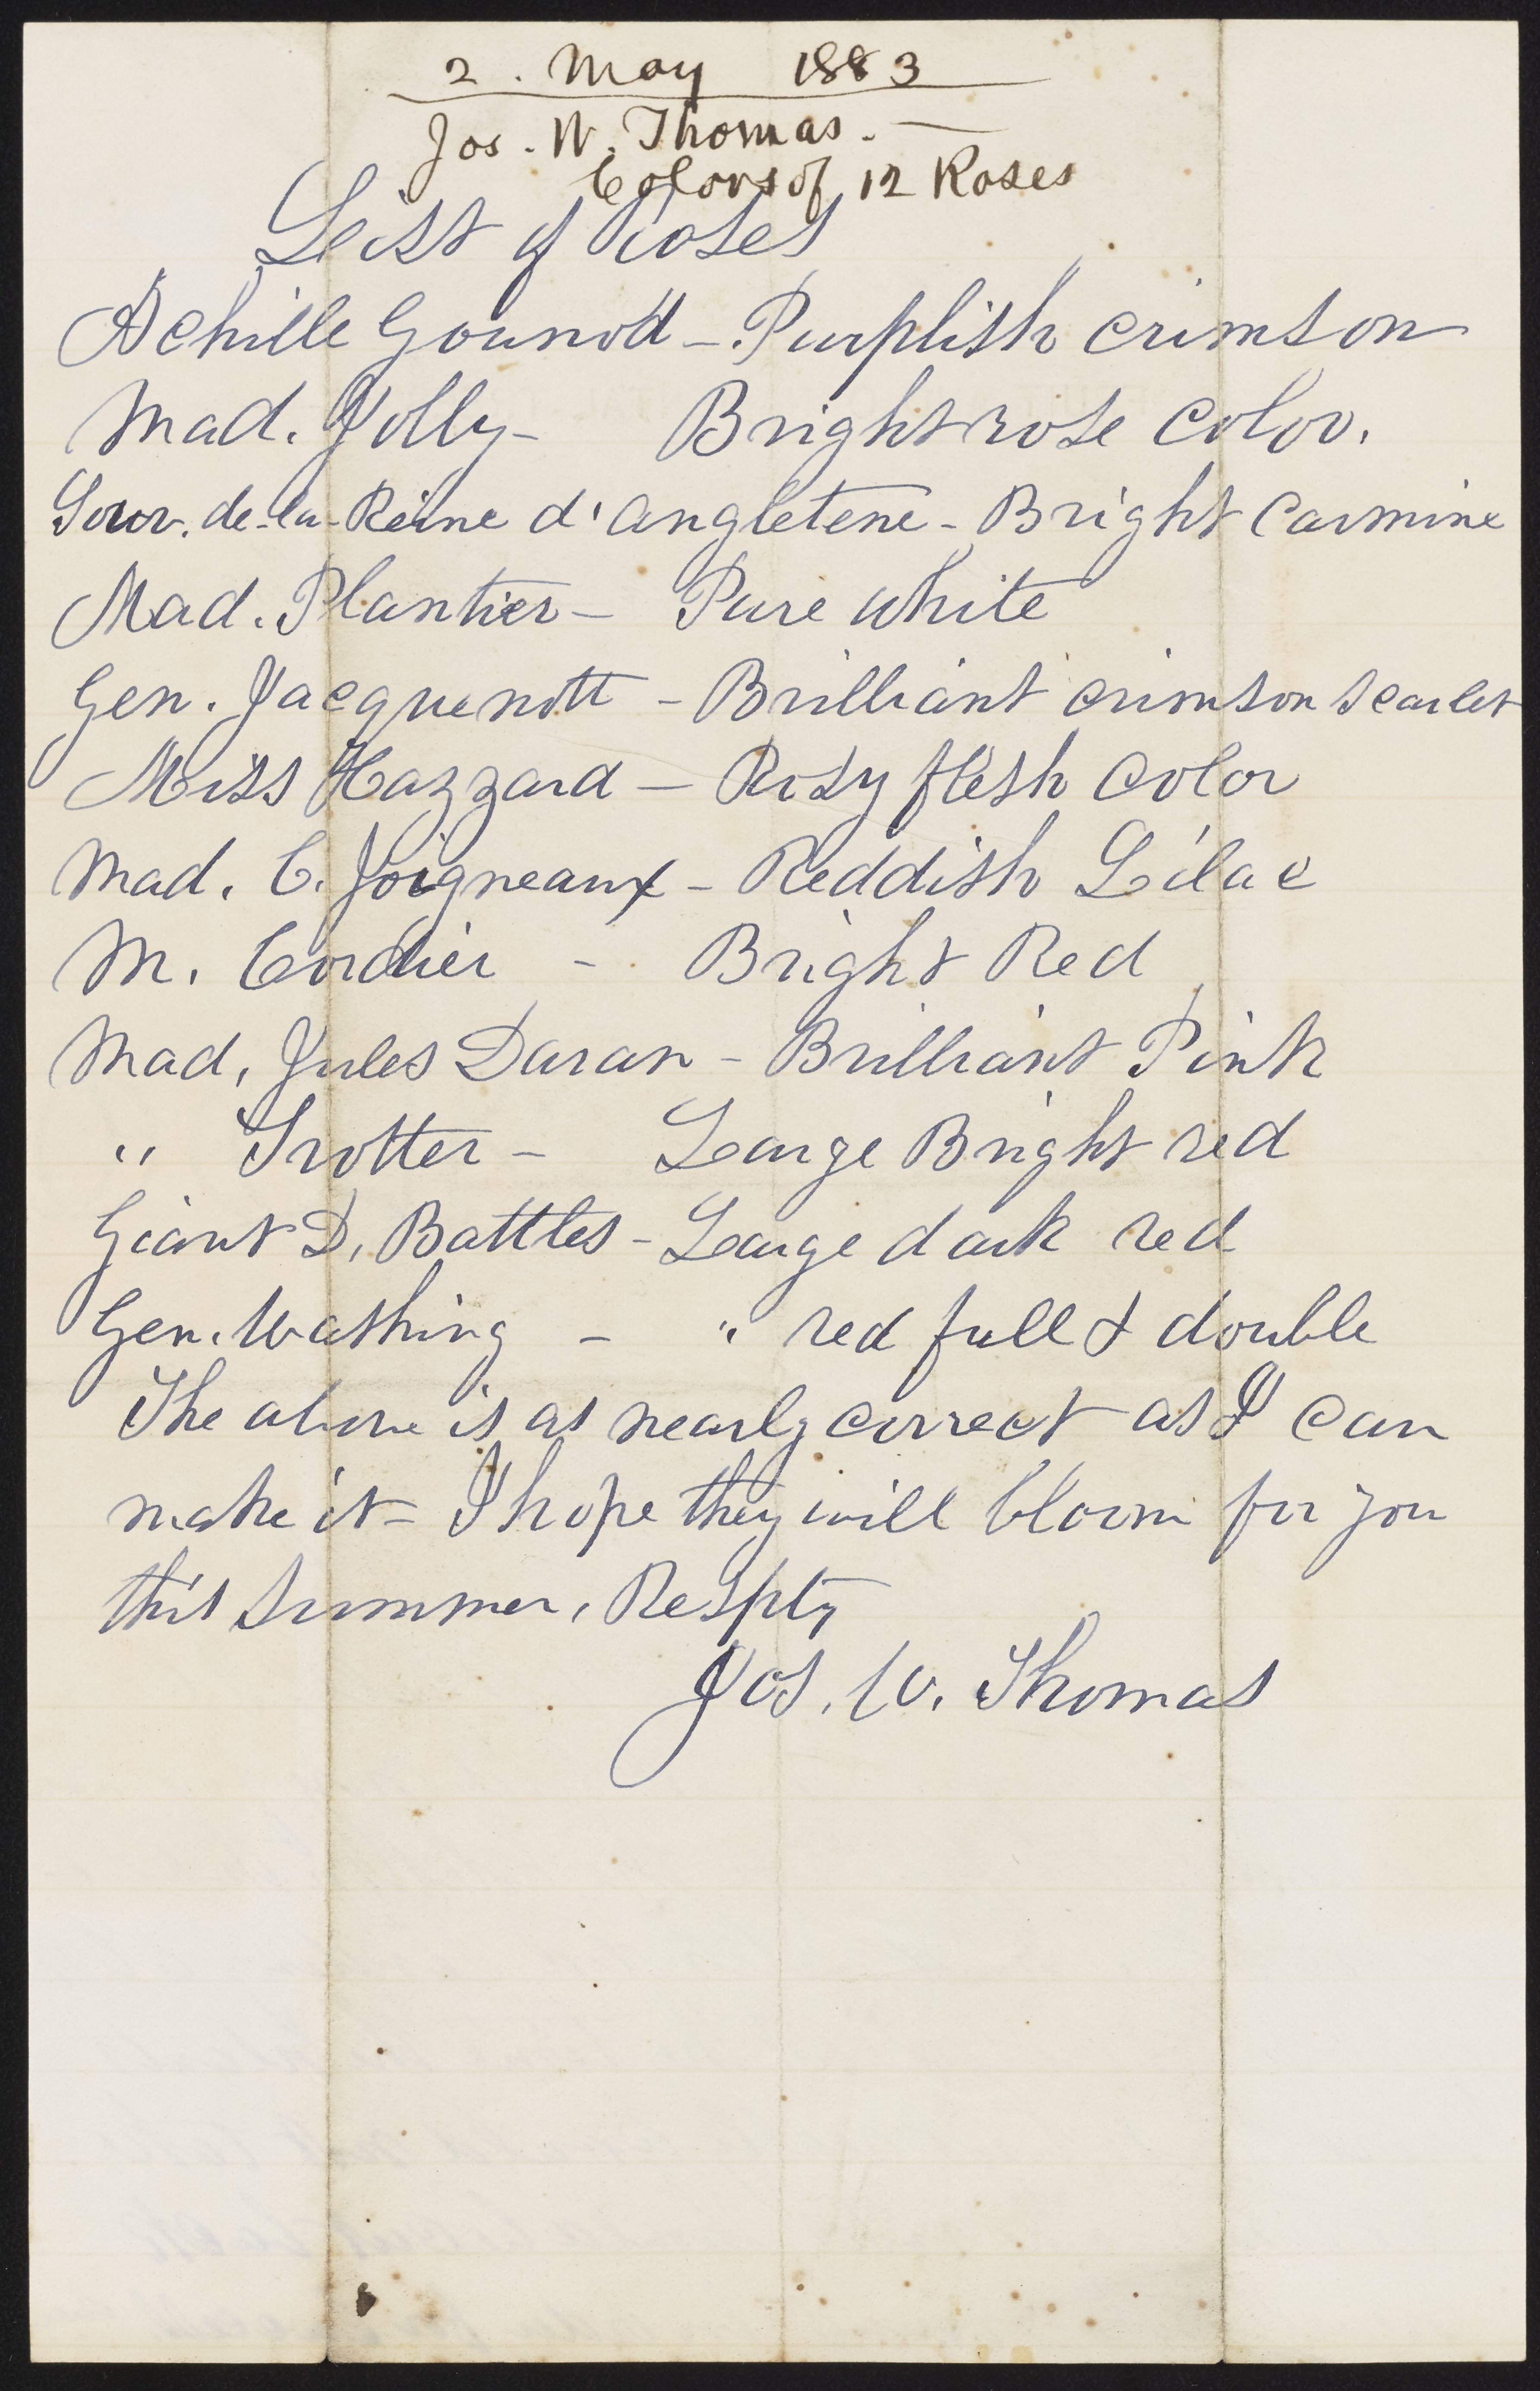 2. May 1883
Jos. W. Thomas. —
Colors of 12 Roses
List of Roses
Achille Gounod - Purplish crimson
Mad. Jolly - Bright rose color.
Souv. de-la-Reine d'Angleterre - Bright Carmine
Mad. Plantier - Pure white
Gen. Jacquenott - Brilliant crimson scarlet
Miss Hazzard - Rosy flesh color
Mad. C. Joigneaux - Reddish Lilac
M. Cordier - Bright Red
Mad. Jules Daran - Brilliant Pink
" Trotter - Large Bright red
Giant D. Battles - Large dark red
Gen. Washing - " red full & double
The above is as nearly correct as I can
make it - I hope they will bloom for you
this summer, Respty
Jos. W. Thomas